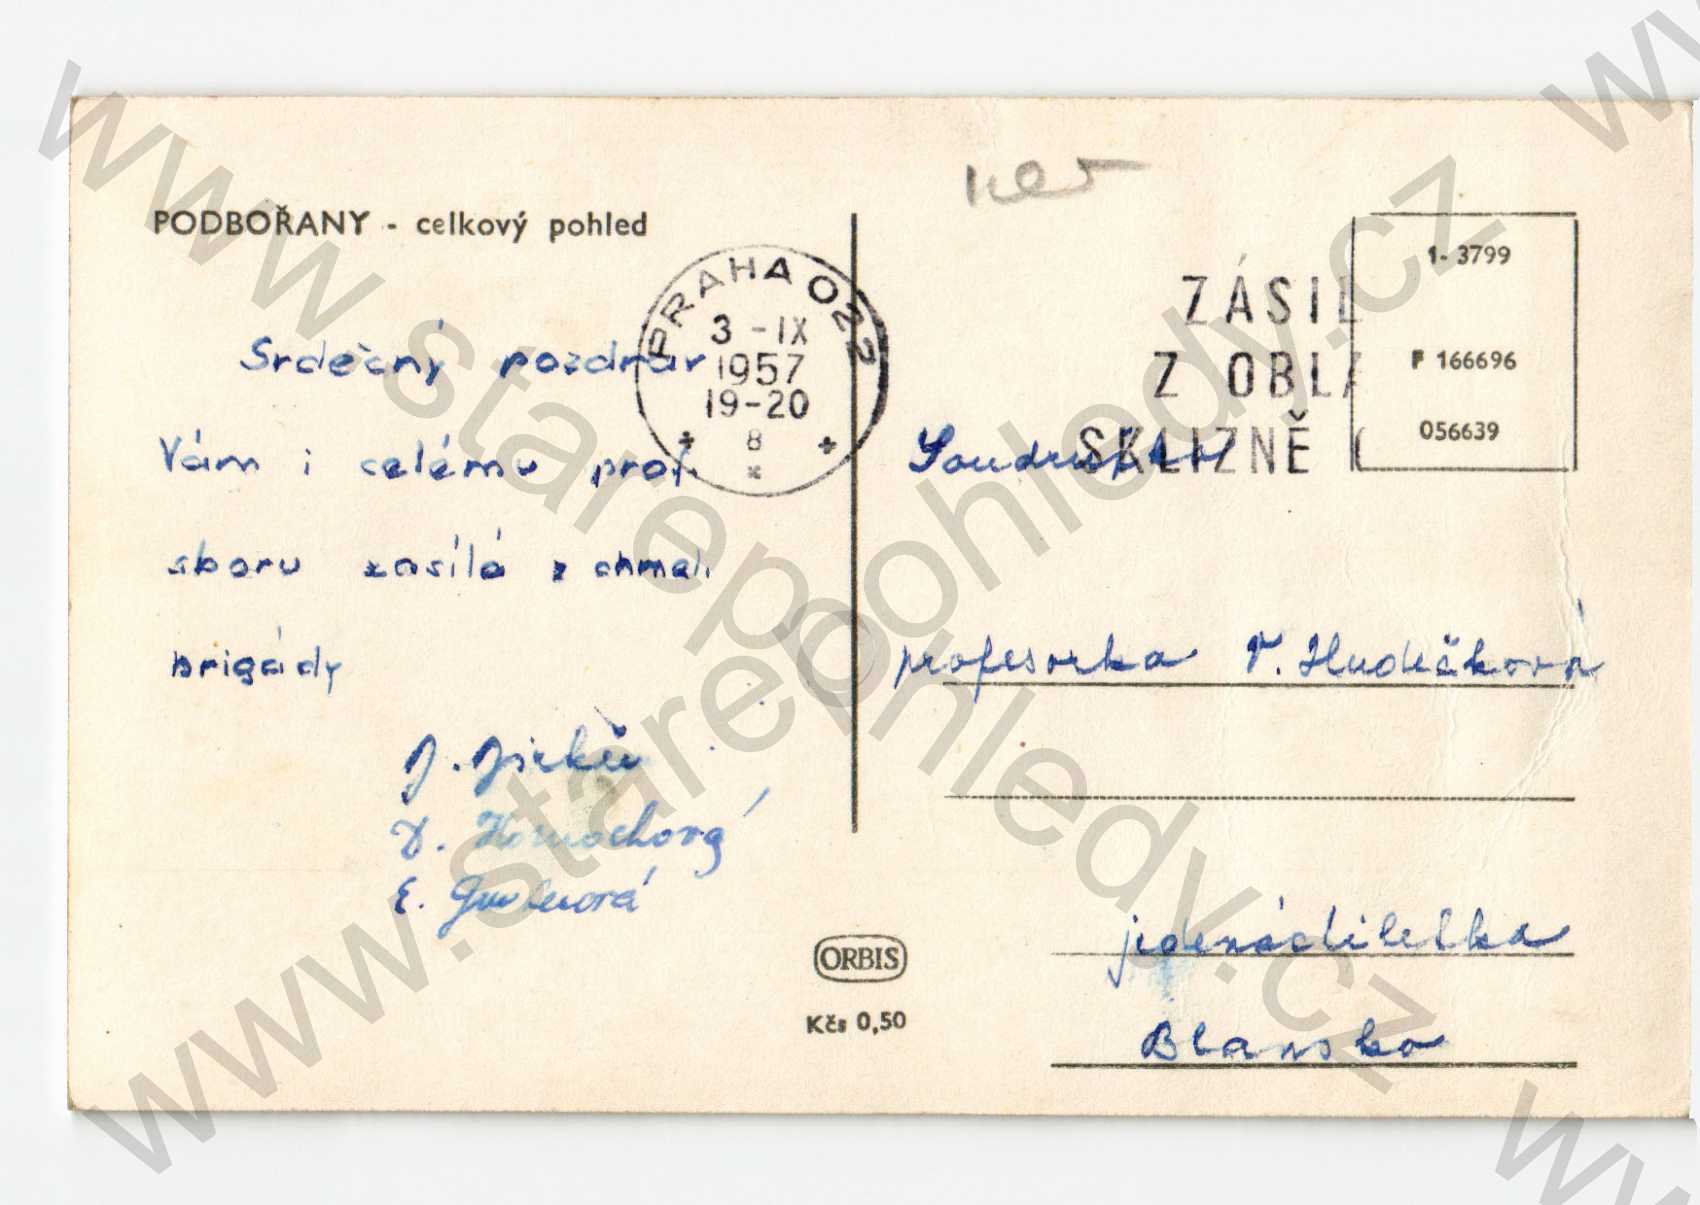 PODBOŘANY - celkový pohled
Srdečný pozdrav
Vám i celému prof.
sboru zasílá z chmel.
brigády
J. Jirků
D.
E.
PRAHA 022
3 - IX
1957
19-20
8
ZÁSIL
Z OBLA
SKLIZNĚ
1- 3799
F 166696
056639
Soudružka
profesorka V. Hudečková
jedenáctiletka
Blansko
ORBIS
Kčs 0,50
www.starepohledy.cz
www.starepohledy.cz